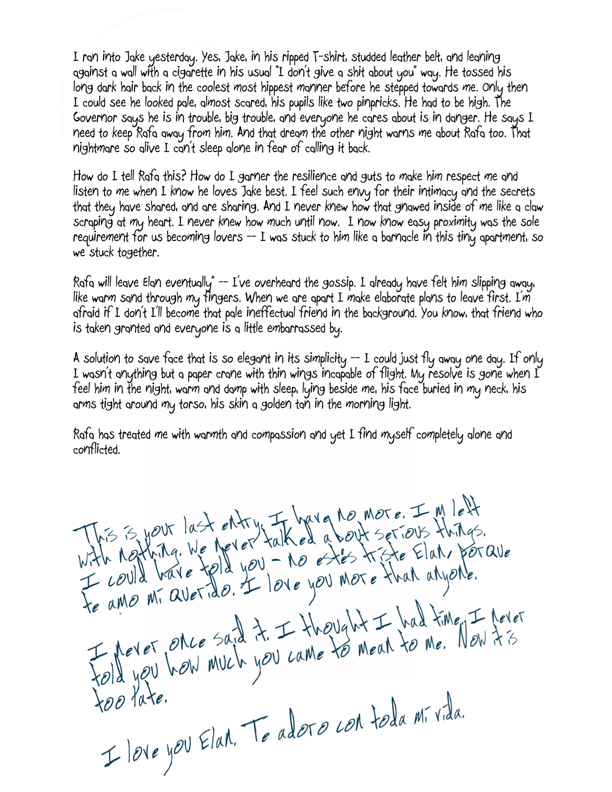 I ran into Jake yesterday. Yes, Jake, in his ripped T-shirt, studded leather belt, and leaning
against a wall with a cigarette in his usual "I don't give a shit about you" way. He tossed his
long dark hair back in the coolest most hippest manner before he stepped towards me. Only then
I could see he looked pale, almost scared, his pupils like two pinpricks. He had to be high. The
Governor says he is in trouble, big trouble, and everyone he cares about is in danger. He says I
need to keep Rafa away from him. And that dream the other night warns me about Rafa too. That
nightmare so alive I can't sleep alone in fear of calling it back.
How do I tell Rafa this? How do I garner the resilience and guts to make him respect me and
listen to me when I know he loves Jake best. I feel such envy for their intimacy and the secrets
that they have shared, and are sharing. And I never knew how that gnawed inside of me like a claw
scraping at my heart. I never knew how much until now. I now know easy proximity was the sole
requirement for us becoming lovers -- I was stuck to him like a barnacle in this tiny apartment, so
we stuck together.
Rafa will leave Elan eventually" -- I've overheard the gossip. I already have felt him slipping away,
like warm sand through my fingers. When we are apart I make elaborate plans to leave first. I'm
afraid if I don't I'll become that pale ineffectual friend in the background. You know, that friend who
is taken granted and everyone is a little embarrassed by.
A solution to save face that is so elegant in its simplicity -- I could just fly away one day. If only
I wasn't anything but a paper crane with thin wings incapable of flight. My resolve is gone when I
feel him in the night, warm and damp with sleep, lying beside me, his face buried in my neck, his
arms tight around my torso, his skin a golden tan in the morning light.
Rafa has treated me with warmth and compassion and yet I find myself completely alone and
conflicted.
This is your last entry. I have no more. I'm left
with nothing. We never talked about serious things.
I could have told you - no estés triste Elan, porque
te amo mi querido. I love you more than anyone.
I never once said it. I thought I had time. I never
told you how much you came to mean to me. Now it is
too late.
I love you Elan. Te adoro con toda mi vida.